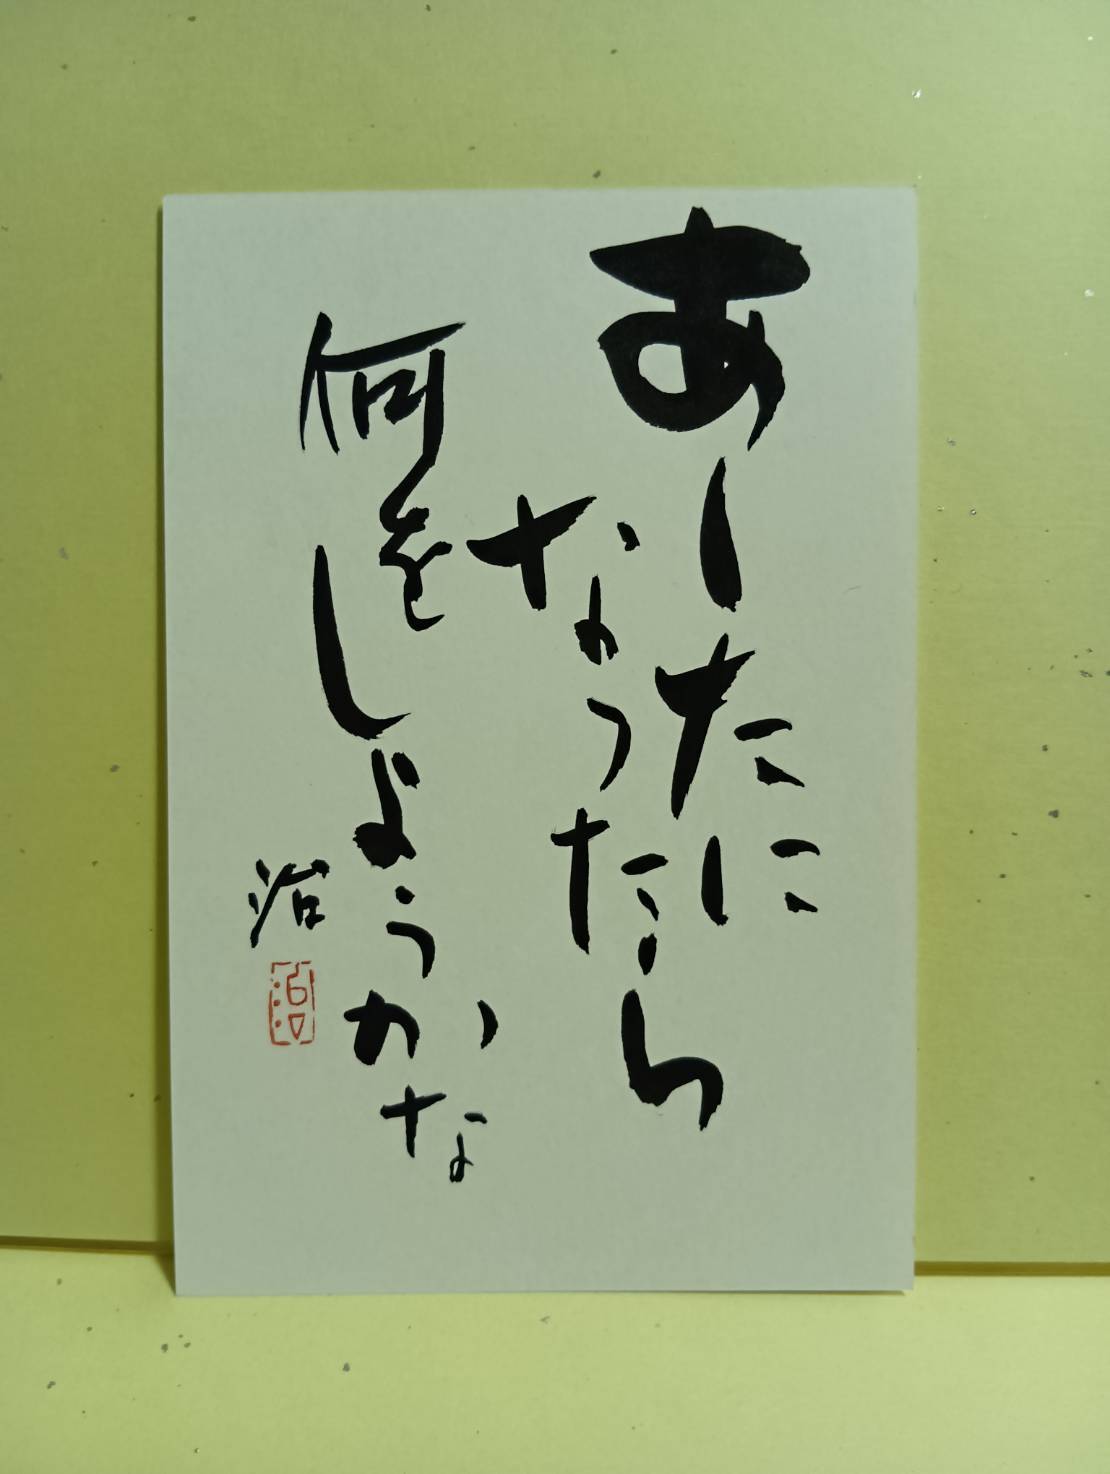 あしたに
なったら
何をしようかな
治
治